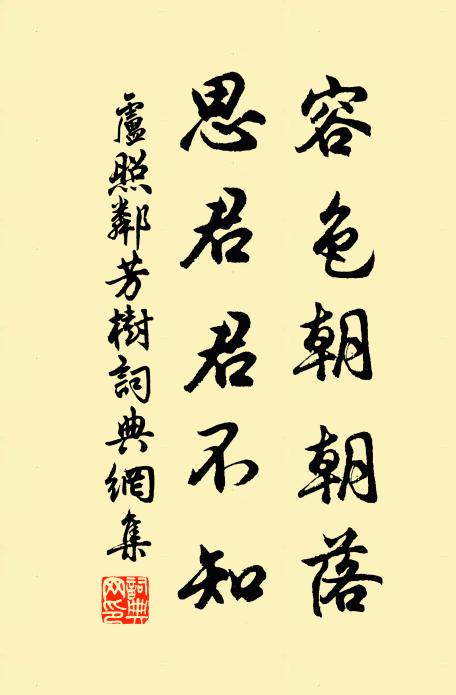 容色朝朝落
思君君不知
盧照鄰芳樹詞典網集
詞典網印